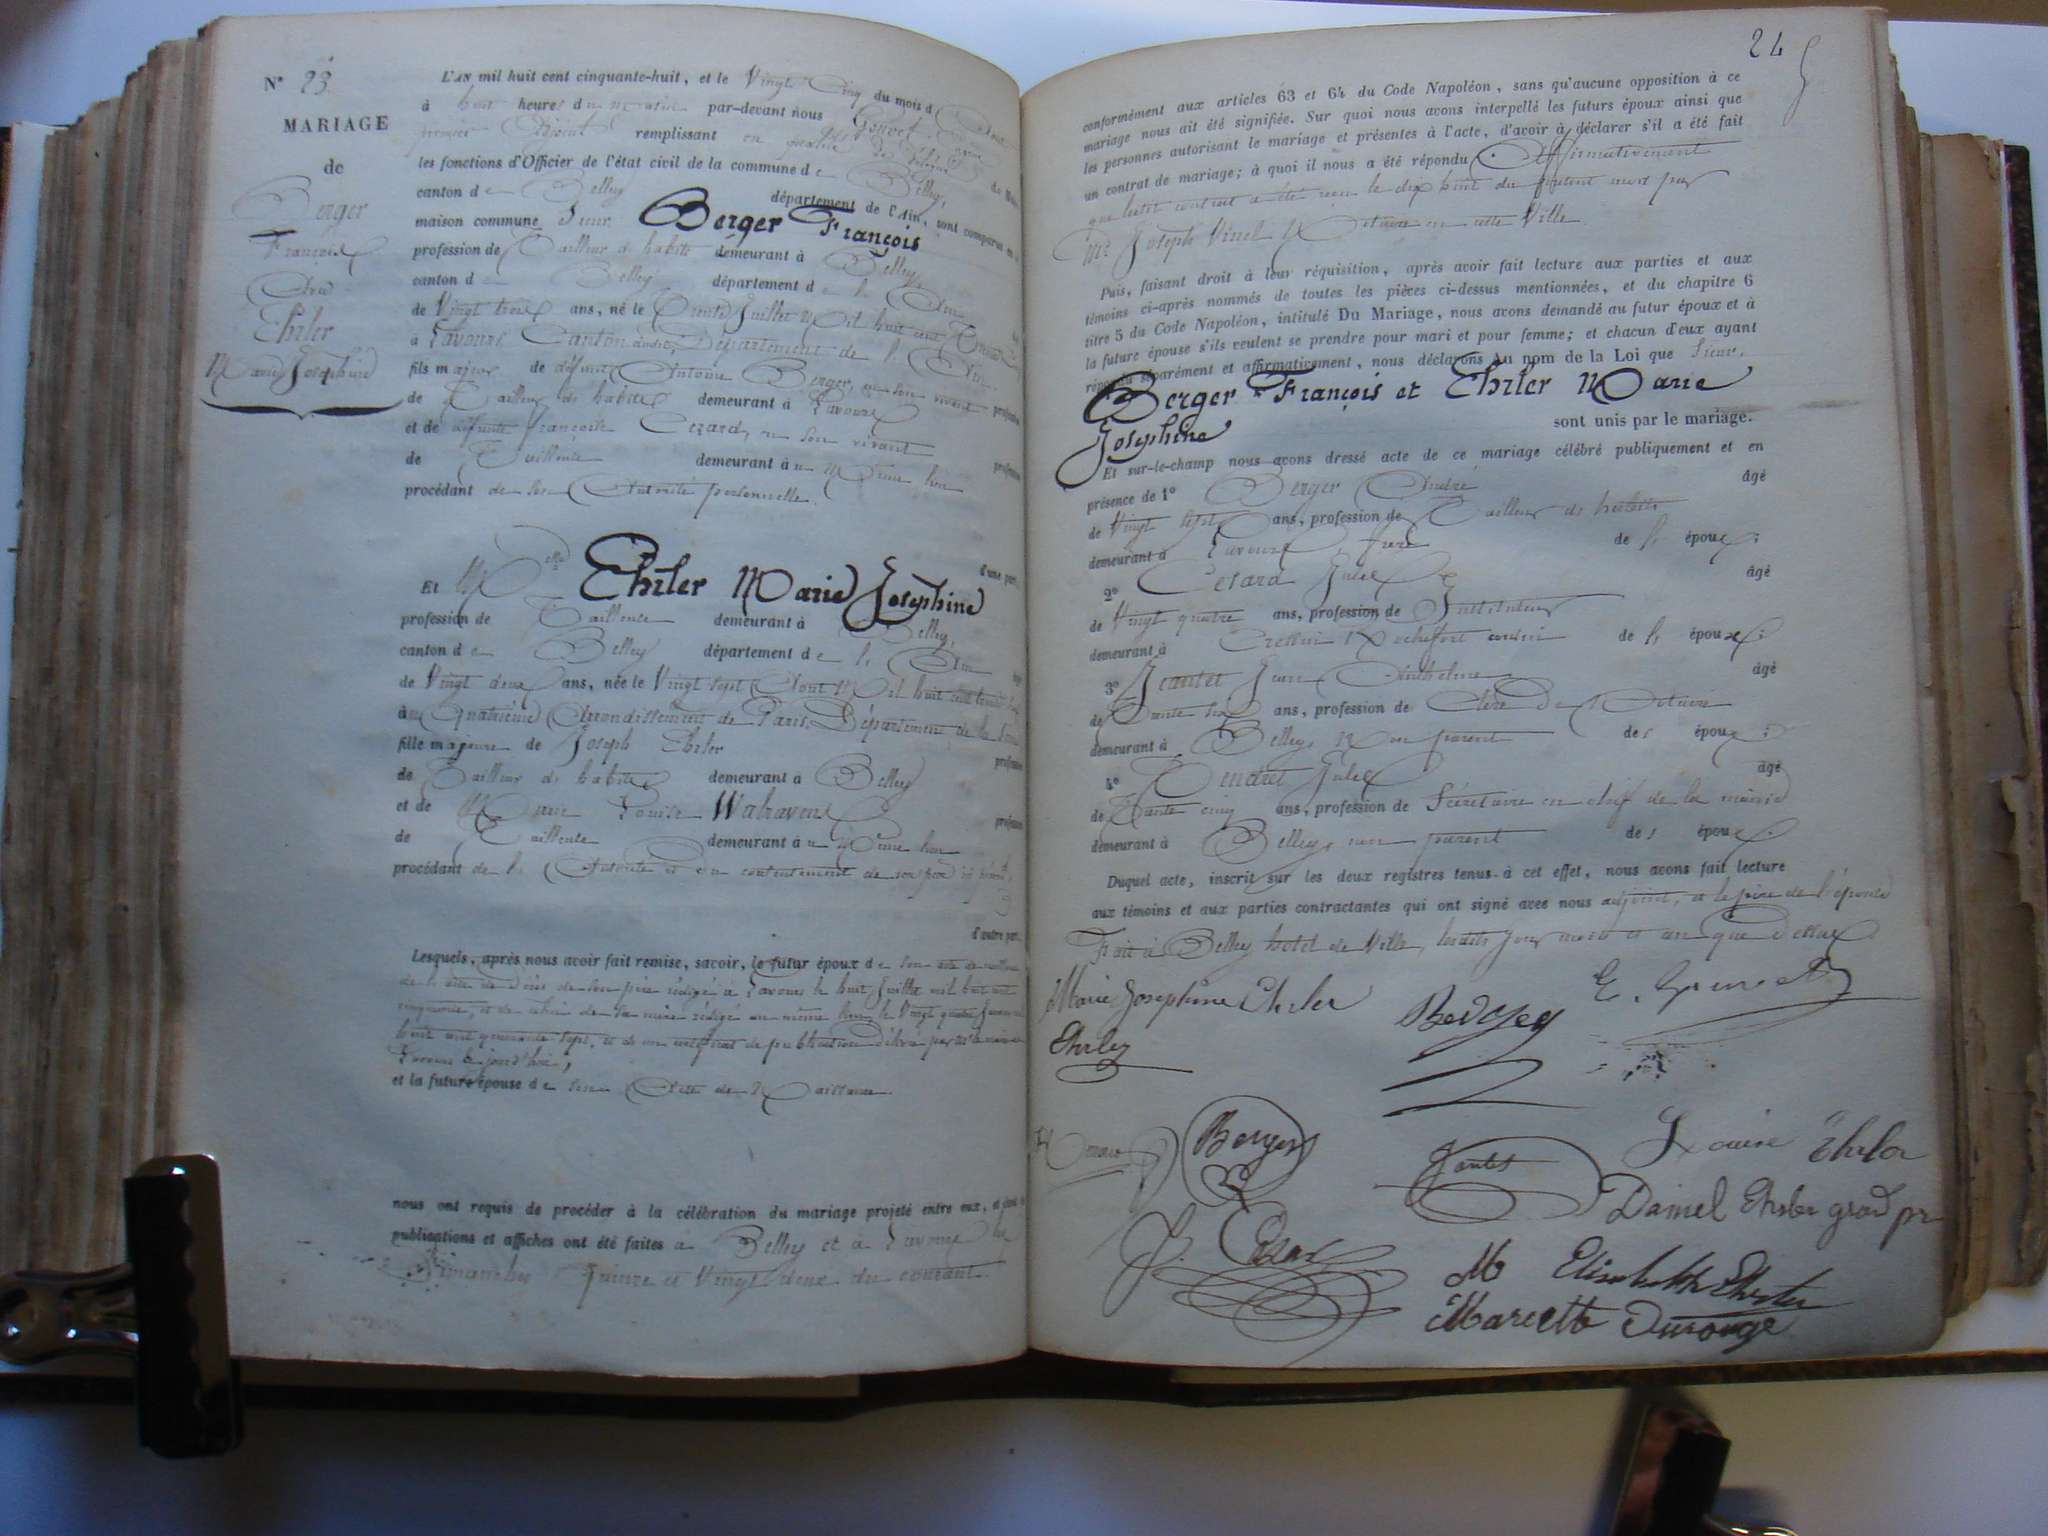 N° 23
MARIAGE
de
Berger
François
Et
Ehrler
Marie Josephine
L'AN mil huit cent cinquante-huit, et le Vingt Cinq du mois d'Aout
à huit heures du matin par-devant nous Gouvet
premier Adjoint remplissant en
les fonctions d'Officier de l'état civil de la commune de Belley,
canton de Belley département de l'Ain, sont comparus en la
maison commune Sieur Berger François
profession de Tailleur d'habits demeurant à Belley,
canton de Belley département de l'Ain
de Vingt trois ans, né le Trente Juillet Mil huit cent Trente
à Lavours, Canton dudit, Département de l'Ain
fils majeur de défunt Antoine Berger, en son vivant profession
de Tailleur d'habits demeurant à Lavours
et de défunte Françoise Cezard, en son vivant profession
de Tailleuse demeurant au Même lieu
procédant de son Autorité personnelle.
d'une part.
Et Delle Ehrler Marie Josephine
profession de Tailleuse demeurant à Belley,
canton de Belley département de l'Ain
de Vingt deux ans, née le Vingt sept Aout Mil huit cent trente
au Quatrième Arrondissement de Paris, Département de la Seine
fille majeure de Joseph Ehrler profession
de Tailleur d'habits demeurant à Belley
et de Marie Louise Walraven profession
de Tailleuse demeurant au Même lieu
procédant de l'Autorité et du consentement de son père ici présent,
d'autre part.
Lesquels, après nous avoir fait remise, savoir, le futur époux de son acte de naissance
de l'acte de Décès de son père rédigé à Lavours le huit Juillet mil huit cent
cinquante, et de celui de sa mère rédigé au même lieu le Vingt quatre
huit cent quarante sept, et de un certificat de publication délivré par Mr le maire de
Lavours le jourd'hui,
et la future épouse de son Acte de Naissance.
nous ont requis de procéder à la célébration du mariage projeté entre eux, et dont les
publications et affiches ont été faites à Belley et à Lavours les
Dimanches Quinze et Vingt deux du courant.
24
conformément aux articles 63 et 64 du Code Napoléon, sans qu'aucune opposition à ce
mariage nous ait été signifiée. Sur quoi nous avons interpellé les futurs époux ainsi que
les personnes autorisant le mariage et présentes à l'acte, d'avoir à déclarer s'il a été fait
un contrat de mariage; à quoi il nous a été répondu Affirmativement
que ledit contrat a été reçu le dix huit du présent mois par
Me Joseph Vinel Notaire en cette Ville
Puis, faisant droit à leur réquisition, après avoir fait lecture aux parties et aux
témoins ci-après nommés de toutes les pièces ci-dessus mentionnées, et du chapitre 6
titre 5 du Code Napoléon, intitulé Du Mariage, nous avons demandé au futur époux et à
la future épouse s'ils veulent se prendre pour mari et pour femme; et chacun d'eux ayant
répondu séparément et affirmativement, nous déclarons Au nom de la Loi que Sieur,
Berger François et Ehrler Marie
Josephine sont unis par le mariage.
Et sur-le-champ nous avons dressé acte de ce mariage célébré publiquement et en
présence de 1° Berger André âgé
de Vingt sept ans, profession de Tailleur d'habits
demeurant à Lavours, frère de l'époux;
2° Cesard Jules âgé
de Vingt quatre ans, profession de Instituteur
demeurant à Cressin Rochefort cousin de l'époux;
3° Jeantet Jean Anthelme âgé
de Trente six ans, profession de Clerc de Notaire
demeurant à Belley, Non parent des époux;
4° Tendret Jules âgé
de Trente cinq ans, profession de Sécretaire en chef de la mairie
demeurant à Belley, non parent des époux.
Duquel acte, inscrit sur les deux registres tenus à cet effet, nous avons fait lecture
aux témoins et aux parties contractantes qui ont signé avec nous adjoint, et le père de l'épouse
Fait à Belley hotel de Ville, lesdits jour mois et an que Dessus
Marie Josephine Ehrler
E. Gouvet
Ehrler
Berger
Louise Ehrler
Jantet
Daniel Ehrler grand pr
J. Cesar
M Elisabethe Ehrler
Mariette Durouge